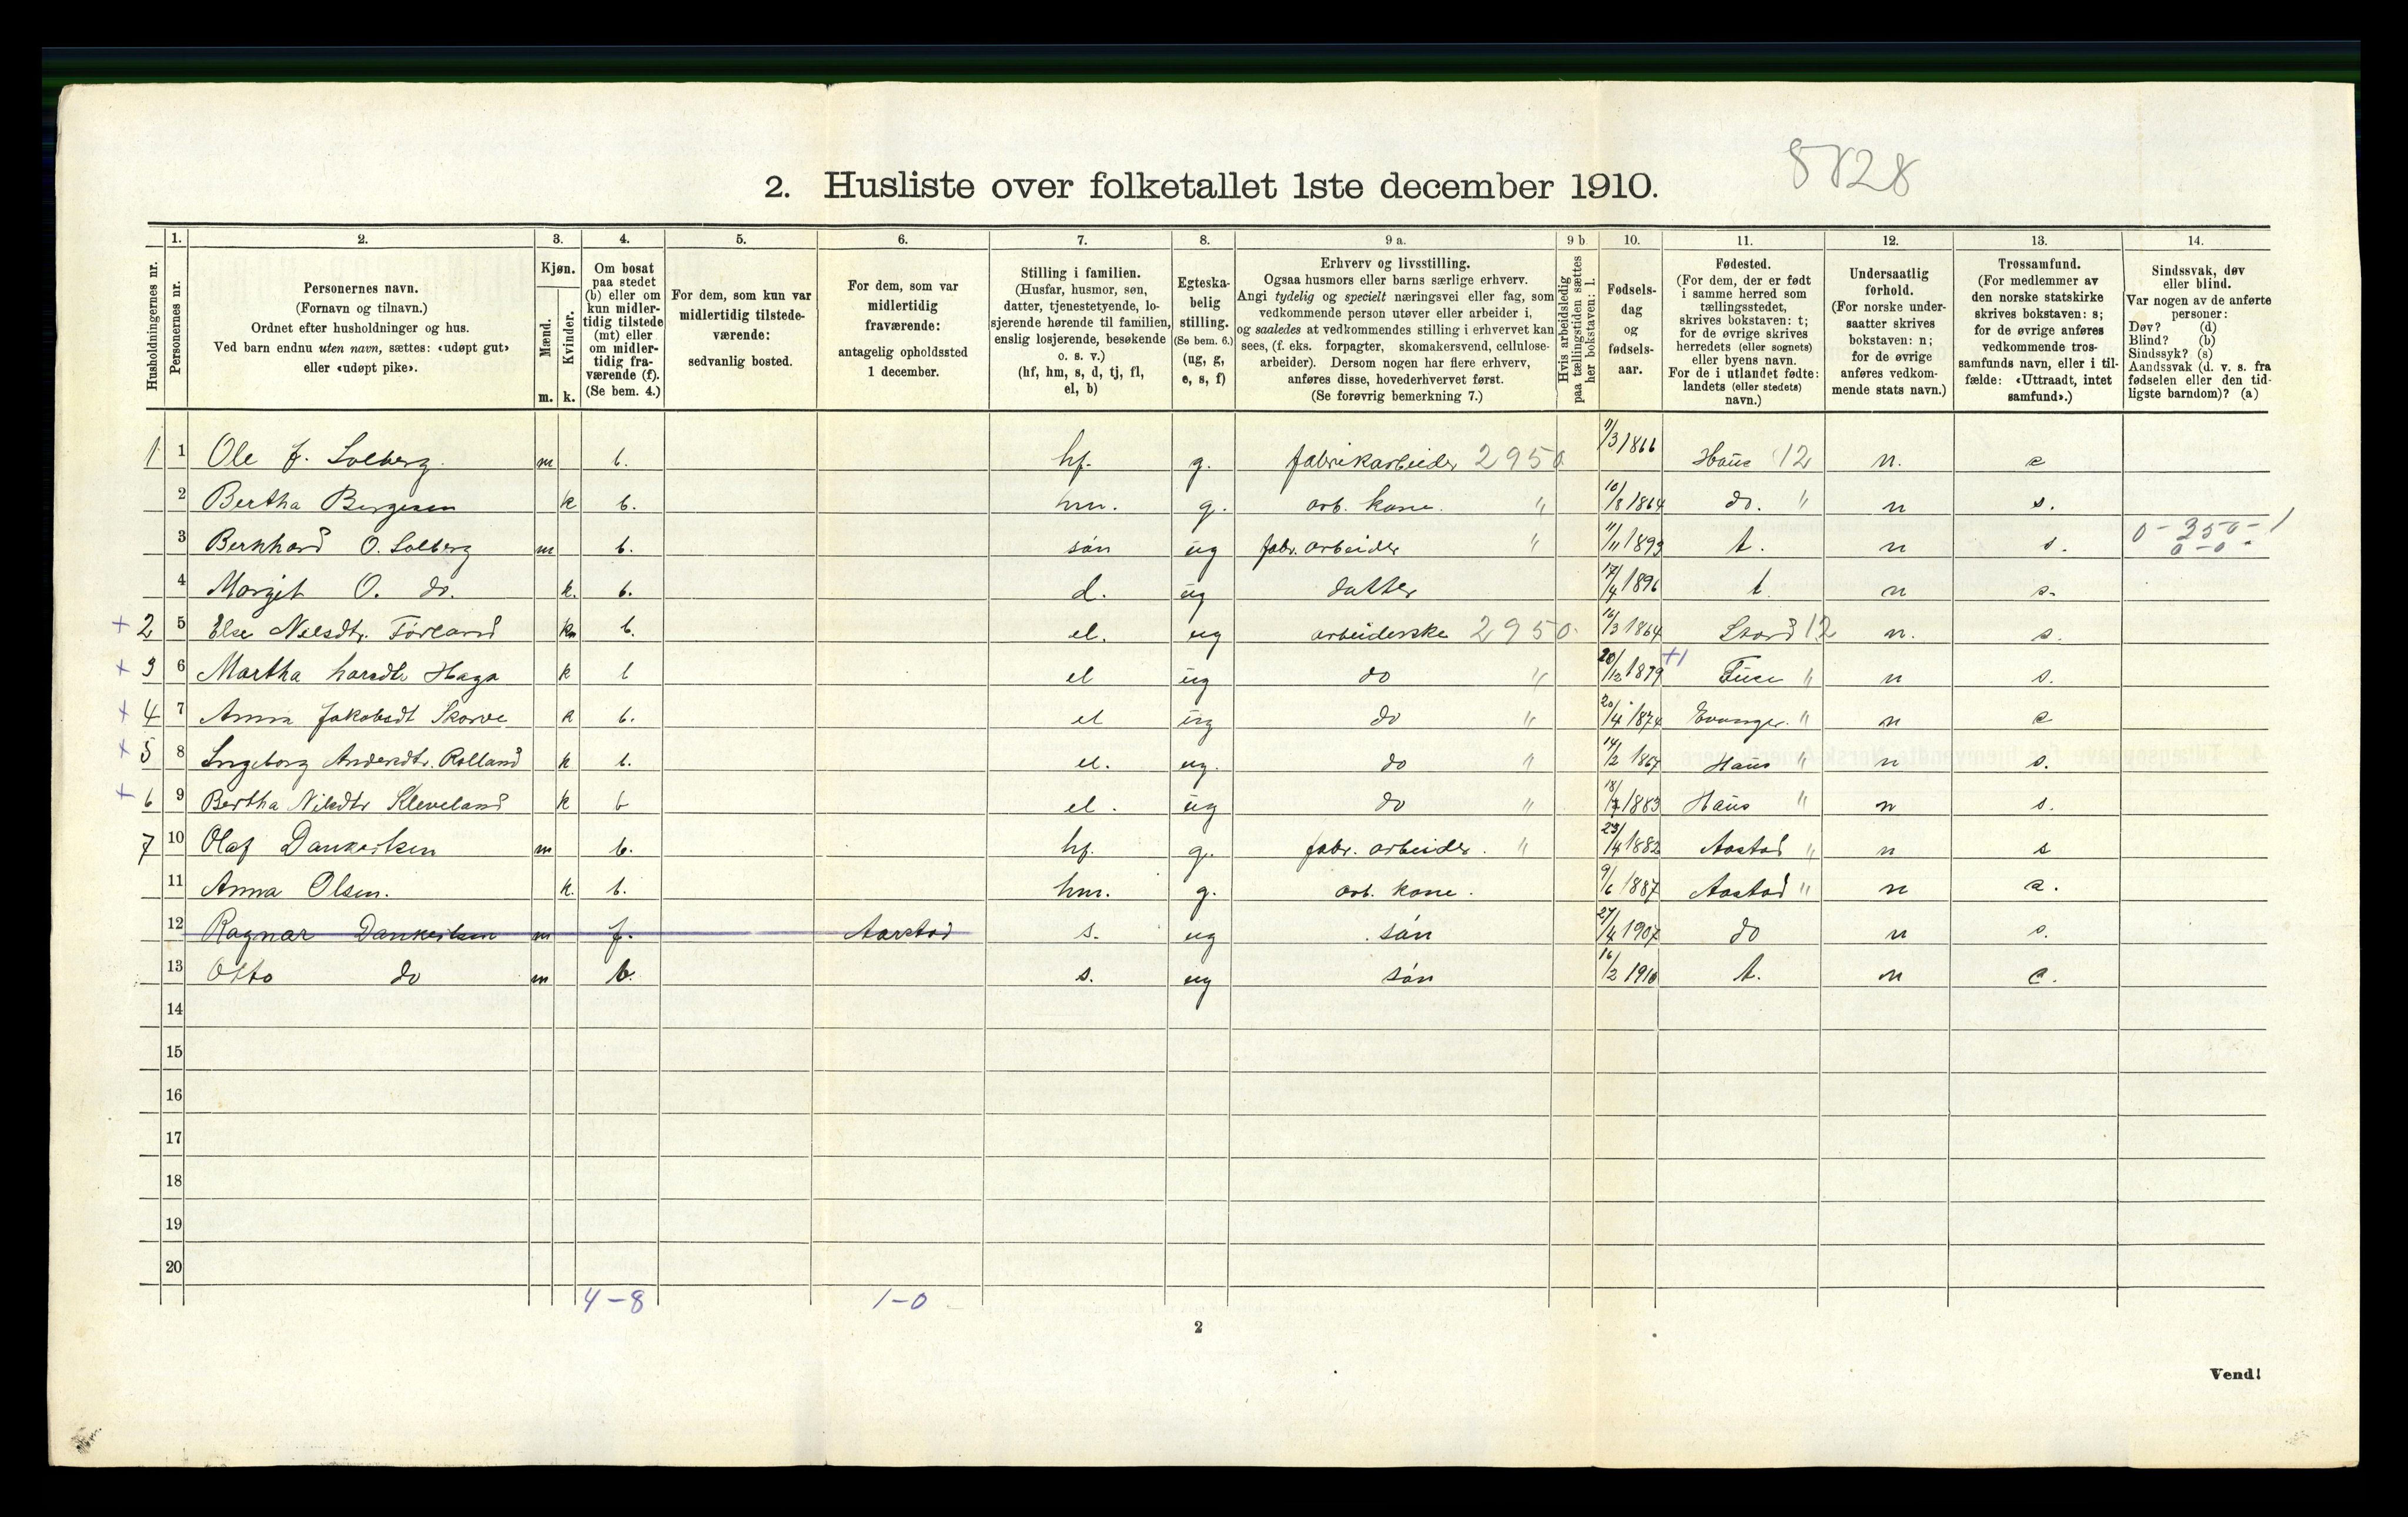 5828
2. Husliste over folketallet 1ste december 1910.
Husholdningernes nr.
1. Personernes nr.
2. Personernes navn. (Fornavn og tilnavn.) Ordnet efter husholdninger og hus. Ved barn endnu uten navn, sættes: «udøpt gut» eller «udøpt pike».
3. Kjøn. Mænd. m. Kvinder. k.
4. Om bosat paa stedet (b) eller om kun midlertidig tilstede (mt) eller om midlertidig fraværende (f). (Se bem. 4.)
5. For dem, som kun var midlertidig tilstedeværende: sedvanlig bosted.
6. For dem, som var midlertidig fraværende: antagelig opholdssted 1 december.
7. Stilling i familien. (Husfar, husmor, søn, datter, tjenestetyende, losjerende hørende til familien, enslig losjerende, besøkende o. s. v.) (hf, hm, s, d, tj, fl, el, b)
8. Egteskabelig stilling. (Se bem. 6.) (ug, g, e, s, f)
9 a. Erhverv og livsstilling. Ogsaa husmors eller barns særlige erhverv. Angi tydelig og specielt næringsvei eller fag, som vedkommende person utøver eller arbeider i, og saaledes at vedkommendes stilling i erhvervet kan sees, (f. eks. forpagter, skomakersvend, cellulosearbeider). Dersom nogen har flere erhverv, anføres disse, hovederhvervet først. (Se forøvrig bemerkning 7.)
9 b Hvis arbeidsledig paa tællingstiden sættes her bokstaven: l.
10. Fødselsdag og fødselsaar.
11. Fødested. (For dem, der er født i samme herred som tællingsstedet, skrives bokstaven: t; for de øvrige skrives herredets (eller sognets) eller byens navn. For de i utlandet fødte: landets (eller stedets) navn.)
12. Undersaatlig forhold. (For norske undersaatter skrives bokstaven: n; for de øvrige anføres vedkommende stats navn.)
13. Trossamfund. (For medlemmer av den norske statskirke skrives bokstaven: s; for de øvrige anføres vedkommende trossamfunds navn, eller i tilfælde: «Uttraadt, intet samfund».)
14. Sindssvak, døv eller blind. Var nogen av de anførte personer: Døv? (d) Blind? (b) Sindssyk? (s) Aandssvak (d. v. s. fra fødselen eller den tidligste barndom)? (a)
1 1 Ole J. Solberg. m b. hf. g. fabrikarbeider 2950 11/3 1866 Haus 12 n. s
2 Bertha Børgesen k b. hm. g. arb. kone. " 10/8 1864 do. " n s.
3 Bernhard O. Solberg m b. søn ug fabr. arbeider " 11/11 1893 t. n s. 0-350-1 0-0
4 Margit O. do. k. b. d. ug datter 17/4 1896 t. n s.
+ 2 5 Else Nilsdtr. Førland k b. el. ug arbeiderske 2950. 16/3 1864 Stord 12 n. s.
+ 3 6 Martha Larsdtr Haga k b el ug do " 20/12 1879 +1 Fuse " n s.
+ 4 7 Anna Jakobsdt Skorve k b. el ug do " 20/4 1874 Evanger. " n s
+ 5 8 Ingeborg Andersdtr. Rolland k b. el. ug. do " 14/2 1867 Haus " n s.
+ 6 9 Bertha Nilsdtr Kleveland k b el. ug do " 18/7 1883 Haus " n s.
7 10 Olaf Dankertsen m b. hf. g. fabr. arbeider. " 23/4 1882 Aastad " n s
11 Anna Olsen. k. b. hm. g. arb. kone. 9/6 1887 Aastad " n s.
12 Ragnar Dankertsen m f. Aarstad s. ug søn 27/4 1907 do n s.
13 Otto do m b. s. ug søn 16/2 1910 t. n s.
14
15
16
17
18
19
20
4-8 1-0
2
Vend!